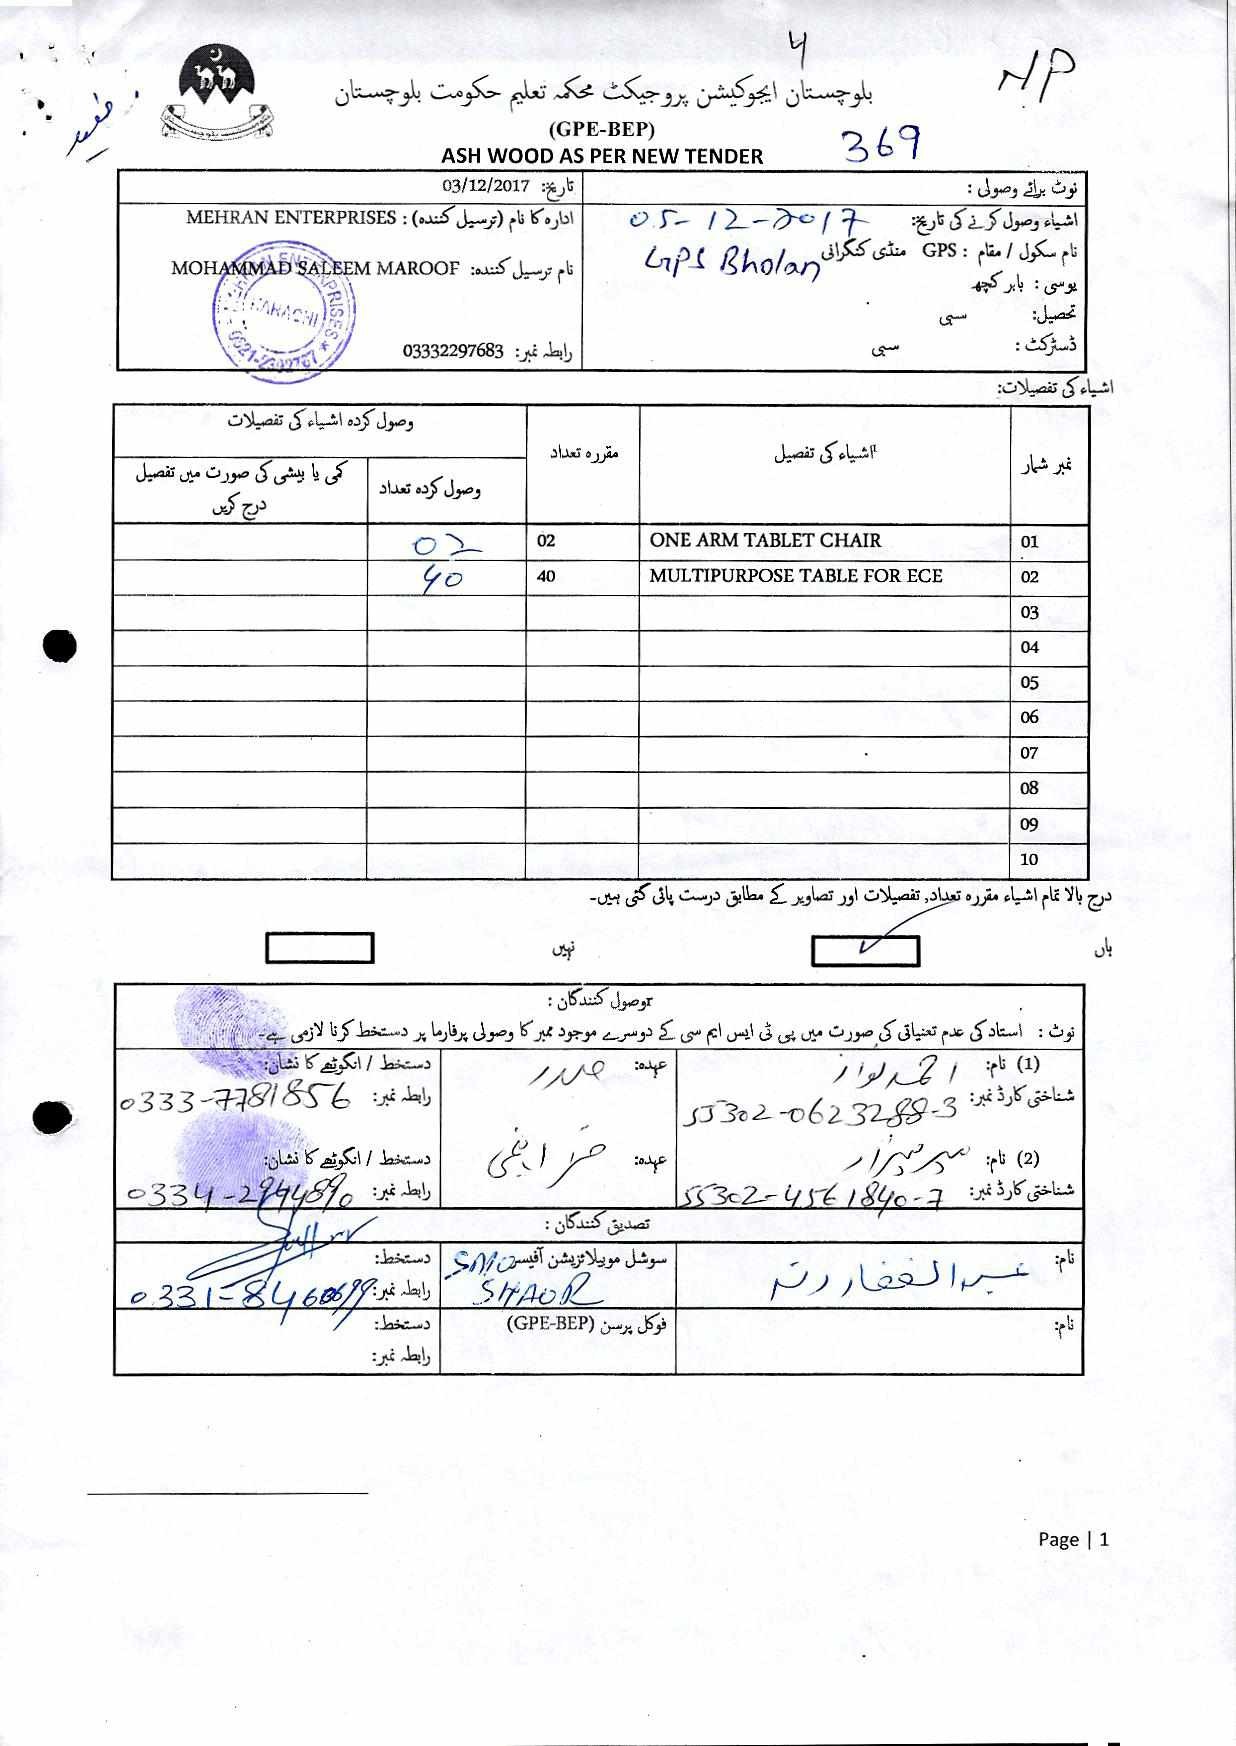 4
NP
بلوچستان ایجوکیشن پروجیکٹ محکمہ تعلیم حکومت بلوچستان
(GPE-BEP)
369
ASH WOOD AS PER NEW TENDER
نوٹ برائے وصولی :
تاریخ: 03/12/2017
اشیاء وصول کرنے کی تاریخ: 05-12-2017
ادارہ کا نام (ترسیل کنندہ) : MEHRAN ENTERPRISES
نام سکول / مقام : GPS منڈی کنگرانی GPS Bholan
نام ترسیل کنندہ: MOHAMMAD SALEEM MAROOF
یوسی : بابر کچھ
تحصیل: سبی
ڈسٹرکٹ : سبی
رابطہ نمبر: 03332297683
KARACHI
اشیاء کی تفصیلات:
نمبر شمار
اشیاء کی تفصیل
مقررہ تعداد
وصول کردہ اشیاء کی تفصیلات
وصول کردہ تعداد
کمی یا بیشی کی صورت میں تفصیل درج کریں
01 ONE ARM TABLET CHAIR 02 02
02 MULTIPURPOSE TABLE FOR ECE 40 40
03
04
05
06
07
08
09
10
درج بالا تمام اشیاء مقررہ تعداد, تفصیلات اور تصاویر کے مطابق درست پائی گئی ہیں۔
ہاں نہیں
وصول کنندگان :
نوٹ : استاد کی عدم تعیناتی کی صورت میں پی ٹی ایس ایم سی کے دوسرے موجود ممبر کا وصولی پرفارما پر دستخط کرنا لازمی ہے۔
(1) نام: احمد نواز عہدہ: صدر دستخط / انگوٹھے کا نشان:
شناختی کارڈ نمبر: 55302-0623288-3 رابطہ نمبر: 0333-7781856
(2) نام: عہدہ: خزانچی دستخط / انگوٹھے کا نشان:
شناختی کارڈ نمبر: 55302-4561840-7 رابطہ نمبر: 0334-2944890
تصدیق کنندگان :
نام: عبدالغفار رند سوشل موبیلائزیشن آفیسر SMO دستخط:
رابطہ نمبر:
فوکل پرسن (GPE-BEP) نام: دستخط:
رابطہ نمبر:
Page | 1